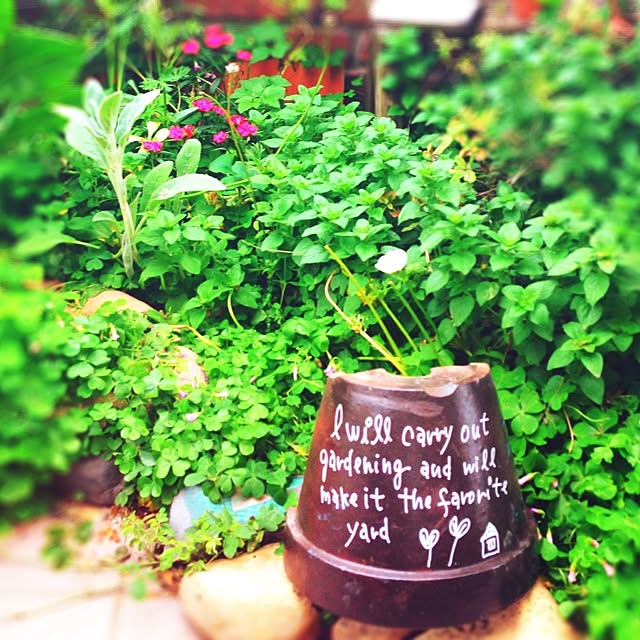 I will carry out
gardening and will
make it the favorite
yard